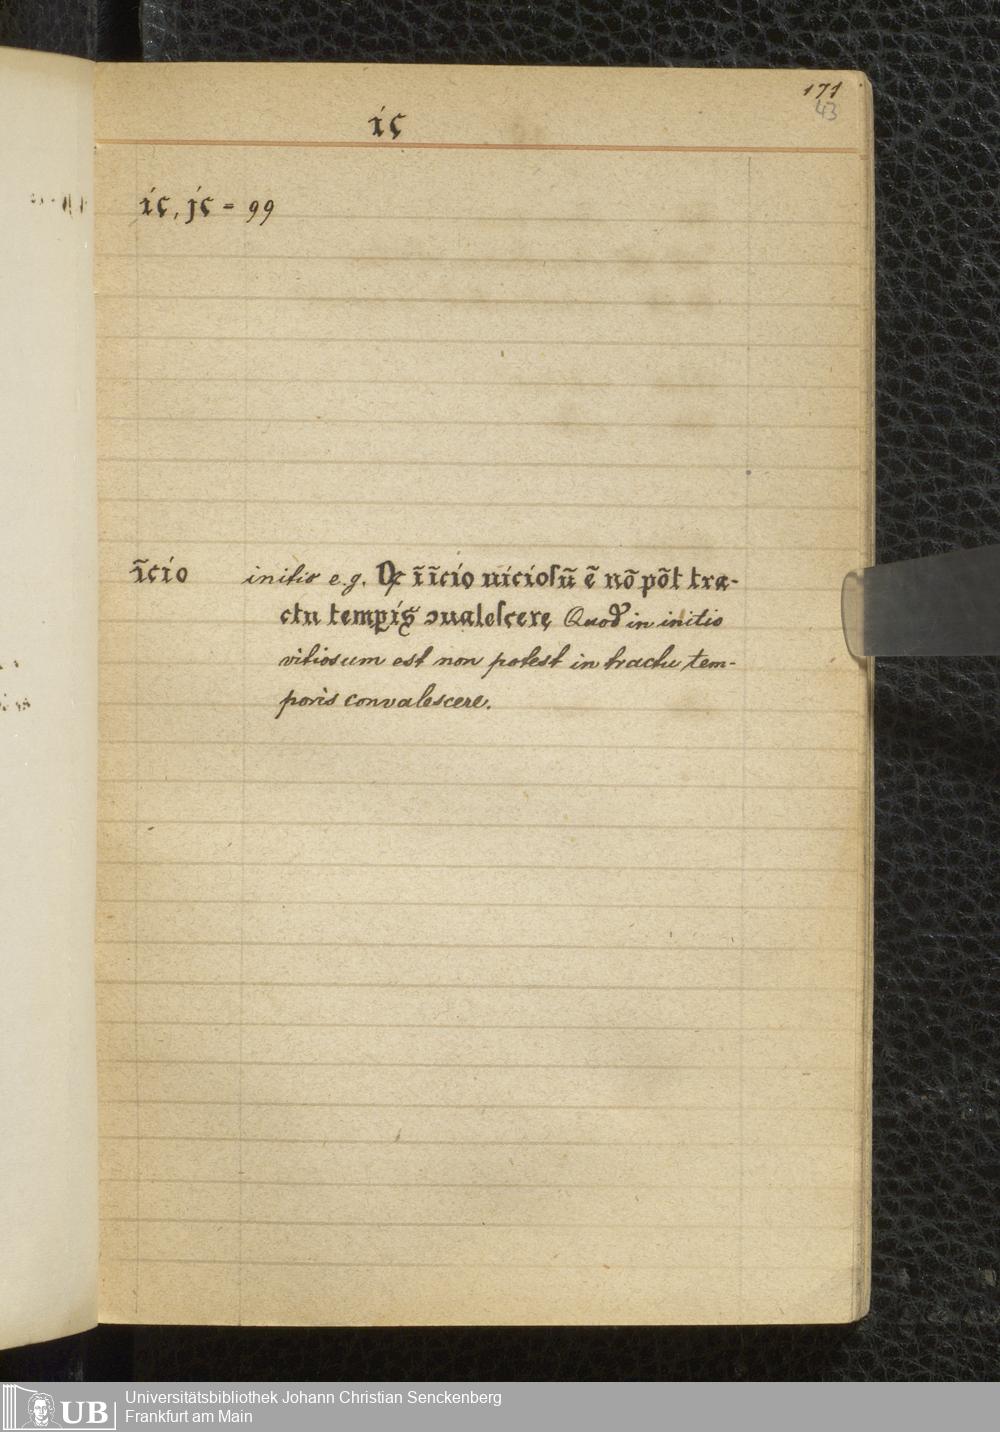 171
43
ic
ic, jc = 99
ĩcio initio e.g. Qꝫ ĩ ĩcio uicioſũ ẽ nõ põt tra-
ctu tempis ɔualeſcere Quod in initio
vitiosum est non potest in tractu tem-
poris convalescere.
UB Universitätsbibliothek Johann Christian Senckenberg
Frankfurt am Main